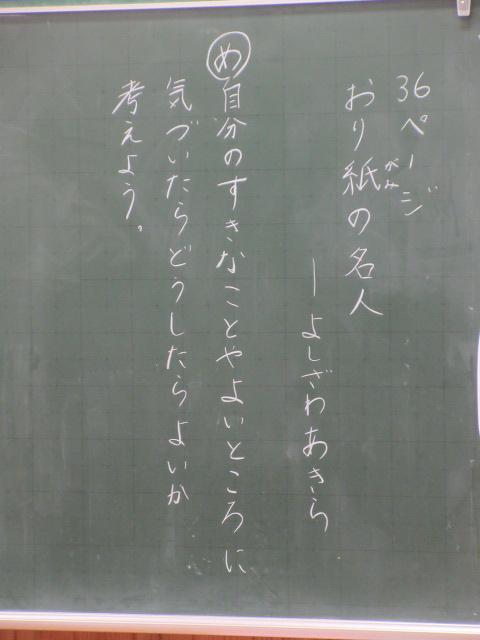 36ページ
おり紙の名人
がみ
―よしざわあきら
め自分のすきなことやよいところに
気づいたらどうしたらよいか
考えよう。